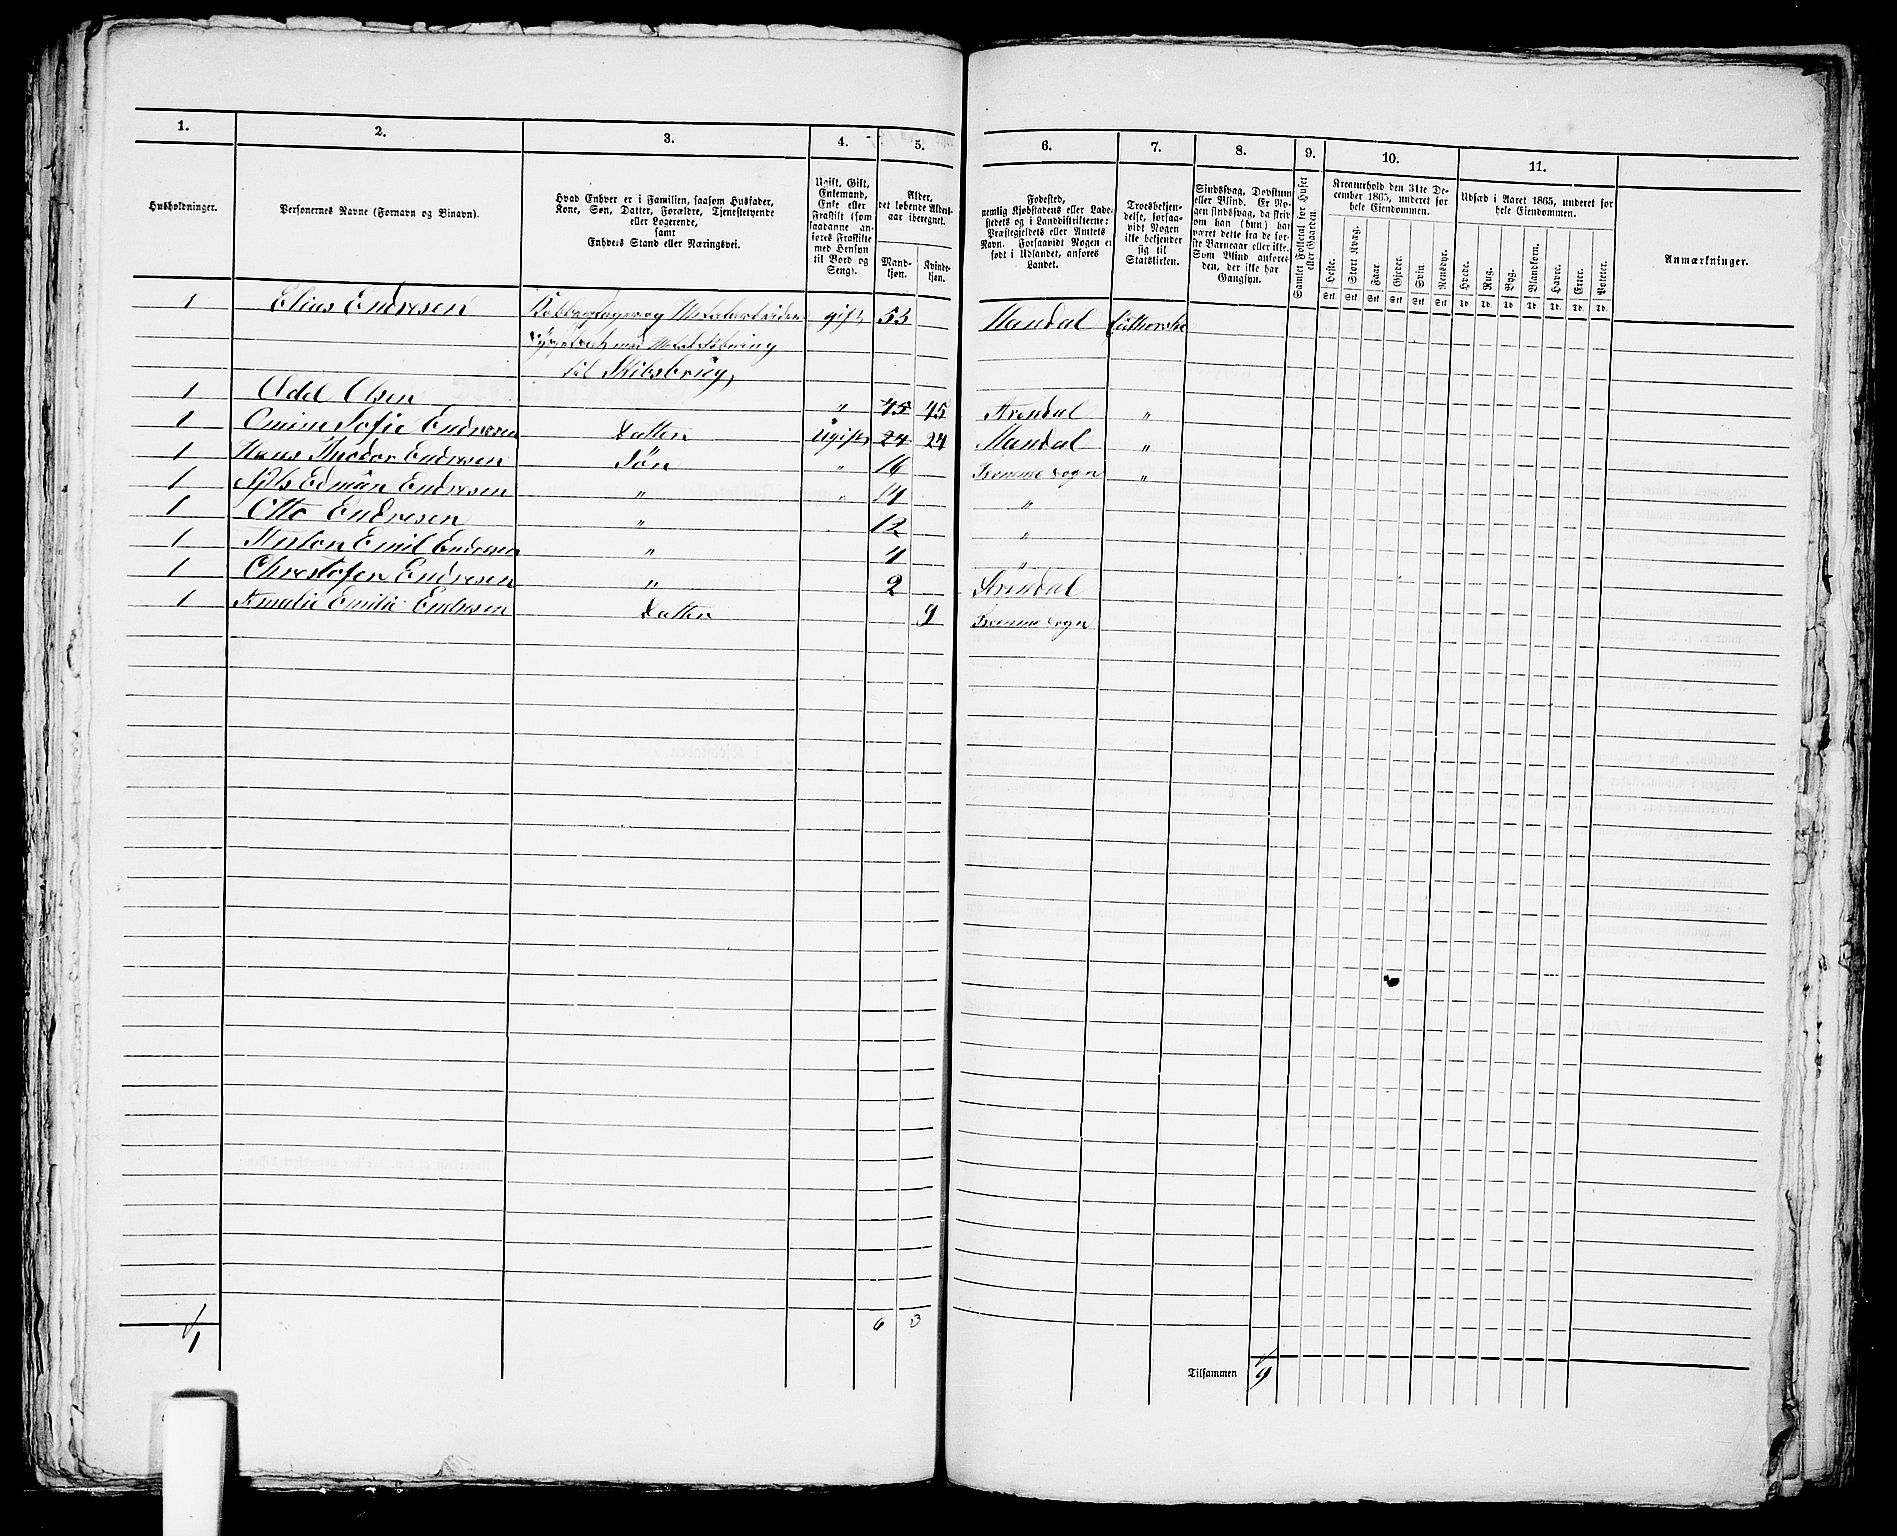 1. 2. 3. 4. 5. 6. 7. 8. 9. 10. 11.
Husholdninger.
Personernes Navne (Fornavn og Binavn).
Hvad Enhver er i Familien, saasom Husfader,
Kone, Søn, Datter, Forældre, Tjenestetyende
eller Logerende,
samt
Enhvers Stand eller Næringsvei.
Ugift, Gift,
Enkemand,
Enke eller
Fraskilt (som
saadanne an-
føres Fraskilte
med Hensyn
til Bord og
Seng).
Alder,
det løbende Alders-
aar iberegnet.
Mand-
kjøn.
Kvinde-
kjøn.
Fødested,
nemlig Kjøbstadens eller Lade-
stedets og i Landdistrikterne:
Præstegjeldets eller Amtets
Navn. Forsaavidt Nogen er
født i Udlandet, anføres
Landet.
Troesbekjen-
delse, forsaa-
vidt Nogen
ikke bekjender
sig til
Statskirken.
Sindssvag, Døvstum
eller Blind. Er No-
gen sindssvag, da skriv
om han (hun) har
været dette fra de før-
ste Barneaar eller ikke.
Som Blind anføres
den, der ikke har
Gangsyn.
Samlet Folketal for Huset
eller Gaarden.
Kreaturhold den 31te De-
cember 1865, underet for
hele Eiendommen.
Heste. Stort Kvæg. Faar. Gjeder. Svin. Rensdyr.
Stk Stk Stk Stk Stk Stk
Udsæd i Aaret 1865, underet for
hele Eiendommen.
Hvede. Rug. Byg. Blandkorn. Havre. Erter. Poteter.
Td. Td. Td. Td. Td. Td. Td.
Anmærkninger.
1 Elias Endresen gift 55 Mandal Lutherske
til Skibsbrug
1 Olsen " 45 45 Arendal "
1 Sofie Endresen Datter Ugift 24 24 Mandal "
1 Hans Endresen Søn " 16 Tromme Sogn "
1 Edman Endresen " " 14 "
1 Otto Endresen " 12 "
1 Anton Emil Endresen " 4 "
1 Christofer Endresen " 2 Arendal
1 Amalie Emilie Endresen Datter 9 Tromme Sogn
1 6 3
Tilsammen 9